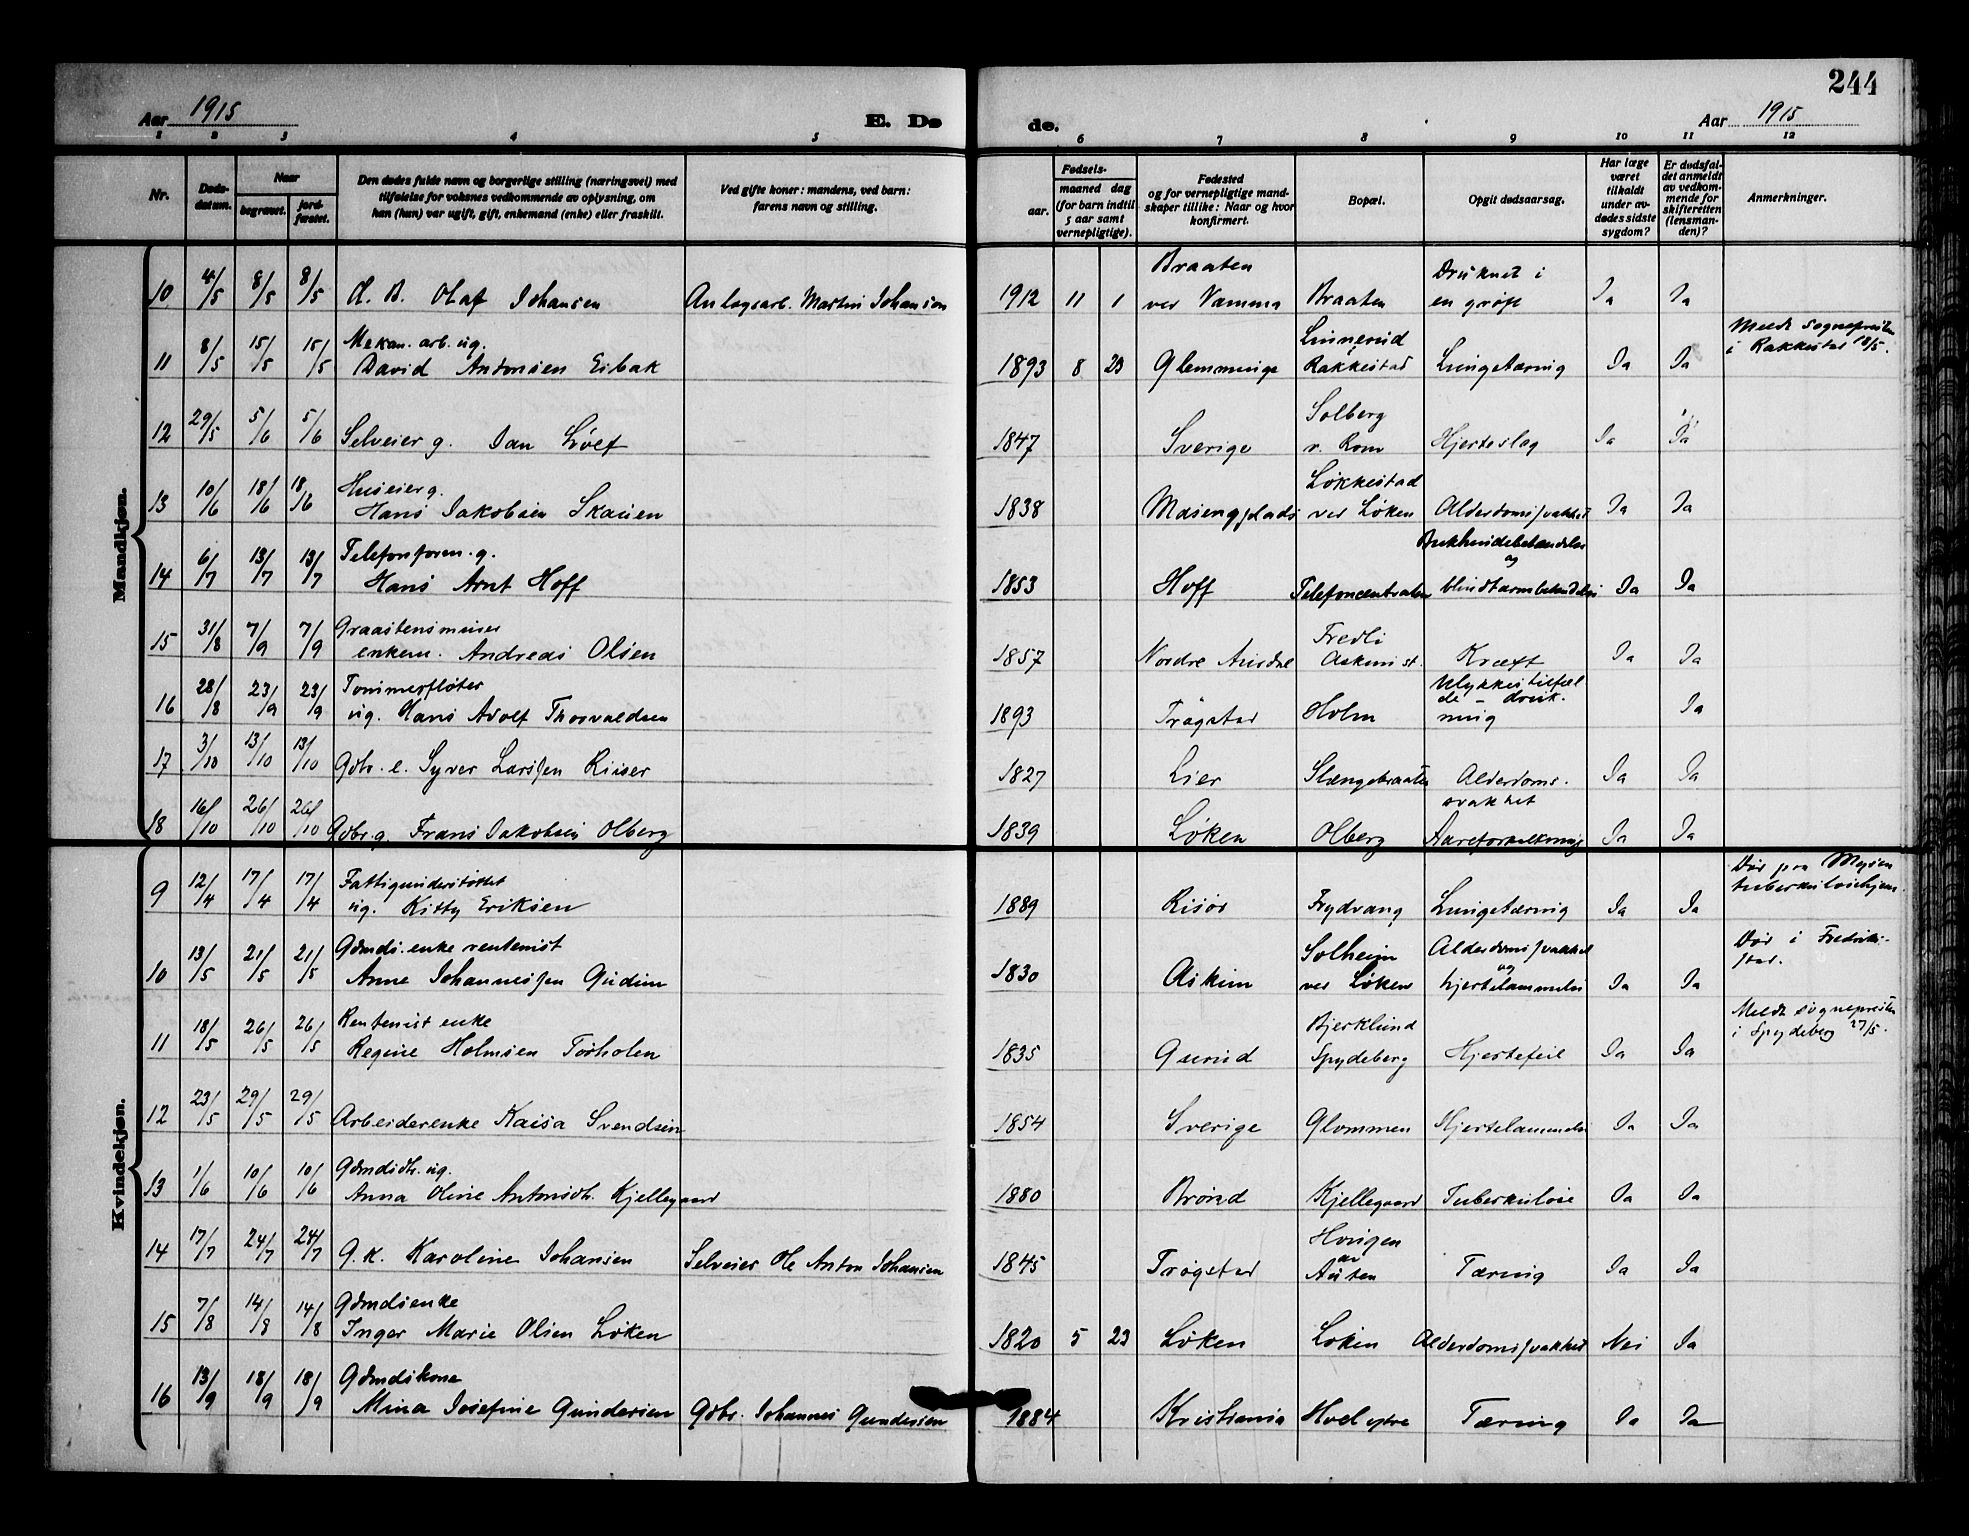 244
Aar 1915
E. Dø
de.
Aar 1915
1 2 3 4 5 6 7 8 9 10 11 12
Nr.
Døds-
datum.
Naar
begravet.
jord-
fæstet.
Den dødes fulde navn og borgerlige stilling (næringsvei) med
tilføielse for voksnes vedkommende av oplysning, om
han (hun) var ugift, gift, enkemand (enke) eller fraskilt.
Ved gifte koner: mandens, ved barn:
farens navn og stilling.
Fødsels-
aar.
maaned dag
(for barn indtil
5 aar samt
vernepligtige).
Fødested
og for vernepligtige mand-
skaper tillike: Naar og hvor
konfirmert.
Bopæl.
Opgit dødsaarsag.
Har læge
været
tilkaldt
under av-
dødes sidste
sygdom?
Er dødsfal-
det anmeldt
av vedkom-
mende for
skifteretten
(lensman-
den)?
Anmerkninger.
Mandkjøn.
10 4/5 8/5 8/5 d. B. Olaf Johansen Anlægsarb. Martin Johansen 1912 11 1 Braaten
ved Vamma Braaten Druknet i
en grøft Ja Ja
11 8/5 15/5 15/5 Mekan. arb. ug.
David Antonsen Eibak 1893 8 23 Glemminge Linnerud
Rakkestad Lungetæring Ja Ja Meldt sognepresten
i Rakkestad 18/5.
12 29/5 5/6 5/6 Selveier g. Jan Löef 1847 Sverige Solberg
v. Rom Hjerteslag Ja Ja
13 10/6 18/6 18/6 Huseier g.
Hans Jakobsen Skauen 1838 Masengplads Løkkestad
ved Løken Alderdomssvakhet Ja Ja
14 6/7 13/7 13/7 Telefonforen. g.
Hans Arnt Hoff 1853 Hoff Telefoncentralen Bukhindebetændelse
og
blindtarmbetændelse Ja Ja
15 31/8 7/9 7/9 Graastensmurer
enkem. Andreas Olsen 1857 Nordre Aurdal Fredli
Askim st. Kræft Ja Ja
16 28/8 23/9 23/9 Tømmerfløter
ug. Hans Adolf Thorvaldsen 1893 Trøgstad Holm Ulykkestilfæl
de – druk-
ning Ja
17 3/10 13/10 13/10 Gdbr. e. Syver Larssen Riiser 1827 Lier Slængebraaten Alderdoms-
svakhet Ja Ja
18 16/10 26/10 26/10 Gdbr. g. Frans Jakobsen Olberg 1839 Løken Olberg Aareforkalkning Ja Ja
Kvindekjøn.
9 12/4 17/4 17/4 Fattigunderstøttet
ug. Kitty Eriksen 1889 Risør Frydvang Lungetæring Ja Ja Død paa Mysen
tuberkulosehjem.
10 13/5 21/5 21/5 Gdmds. enke rentenist
Anne Johannessen Gudim 1830 Askim Solheim
ved Løken Alderdomssvakhet
og
hjertelammelse Ja Ja Død i Fredrik-
stad.
11 18/5 26/5 26/5 Rentenist enke
Regine Holmsen Torholen 1835 Gurud Bjerklund
Spydeberg Hjertefeil Ja Ja Meldt sognepresten
i Spydeberg 27/5.
12 23/5 29/5 29/5 Arbeiderenke Kaisa Svendsen 1854 Sverige Glommen Hjertelammelse Ja Ja
13 1/6 10/6 10/6 Gdmdsdtr. ug.
Anna Oline Antonsdtr. Kjellegaard 1880 Brønd Kjellegaard Tuberkulose Ja Ja
14 17/7 24/7 24/7 G. k. Karoline Johansen Selveier Ole Anton Johansen 1845 Trøgstad Haugen
av
Auten Tæring Ja Ja
15 7/8 14/8 14/8 Gdmdsenke
Inger Marie Olsen Løken 1820 5 23 Løken Løken Alderdomssvakhet Nei Ja
16 13/9 18/9 18/9 Gdmdskone
Mina Josefine Gundersen Gdbr. Johannes Gundersen 1884 Kristiania Hoel vstre Tæring Ja Ja